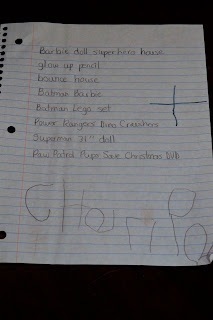 Barbie doll superhero house
glow up pencil
bounce house
Batman Barbie
Batman Lego set
Power Rangers Dino Crushers
Superman 24" doll
Paw Patrol Pups Save Christmas DVD